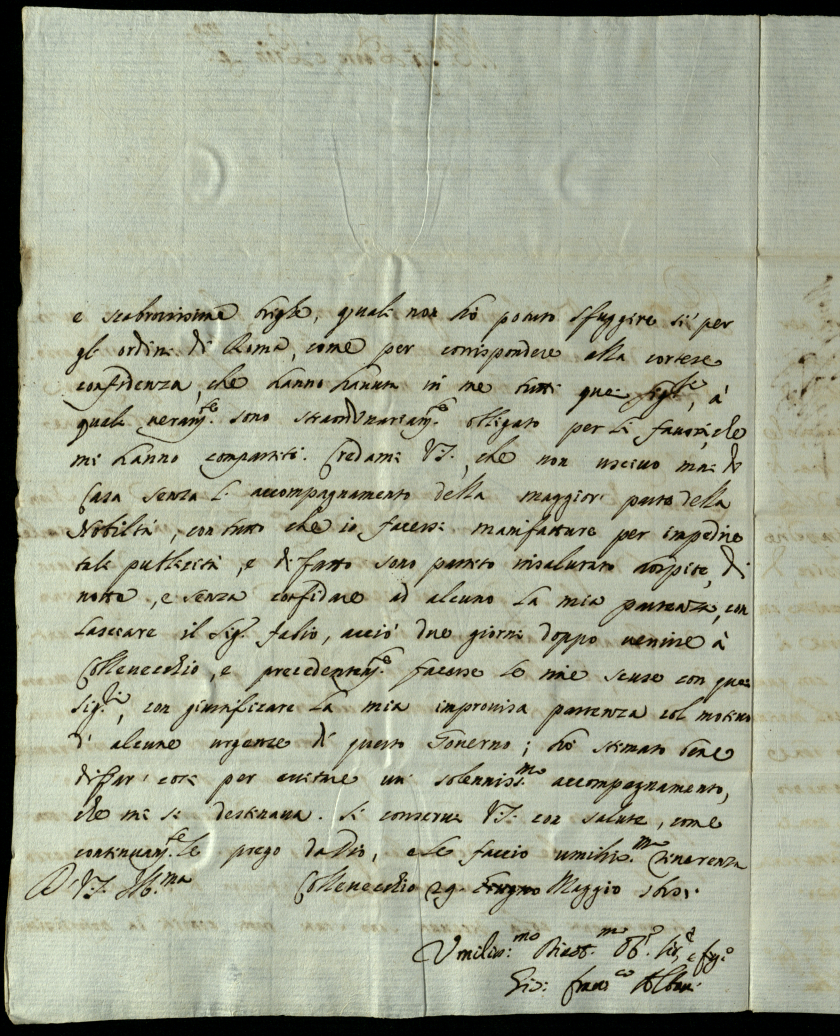 e scabrosissime brighe, quali non hò potuto sfuggire si per
gli ordini di Roma, come per corrispondere alla cortese
confidenza, che hanno hauuta in me tutti quei Sig.ri, à
quali veram.te sono straordinariam.te obligato per li fauori, che
mi hanno compartiti. Credami V.S., che non usciuo mai di
Casa senza l'accompagnamento della maggior parte della
Nobiltà, con tutto che io facessi manifatture per impedire
tale publicità, e di fatto sono partito insalutato ospite, di
notte, e senza confidare ad alcuno la mia partenza, con
lasciare il Sig.r fabio, acciò due giorni doppo uenisse à
Colleuecchio, e precedentem.te facesse le mie scuse con quei
Sig.ri, con giustificare la mia improuisa partenza col motiuo
d'alcune urgenze di questo Gouerno; hò stimato bene
di far così per euitare un solenniss.mo accompagnamento,
che mi si destinaua. Si conserui V.S. con salute, come
continuam.te le prego da Dio, e le faccio umiliss.ma riuerenza
D. V.S. Ill.ma Colleuecchio 29. Giugno Maggio
Umiliss.mo Diuot.mo Ob.
Gio: franc.co Albani